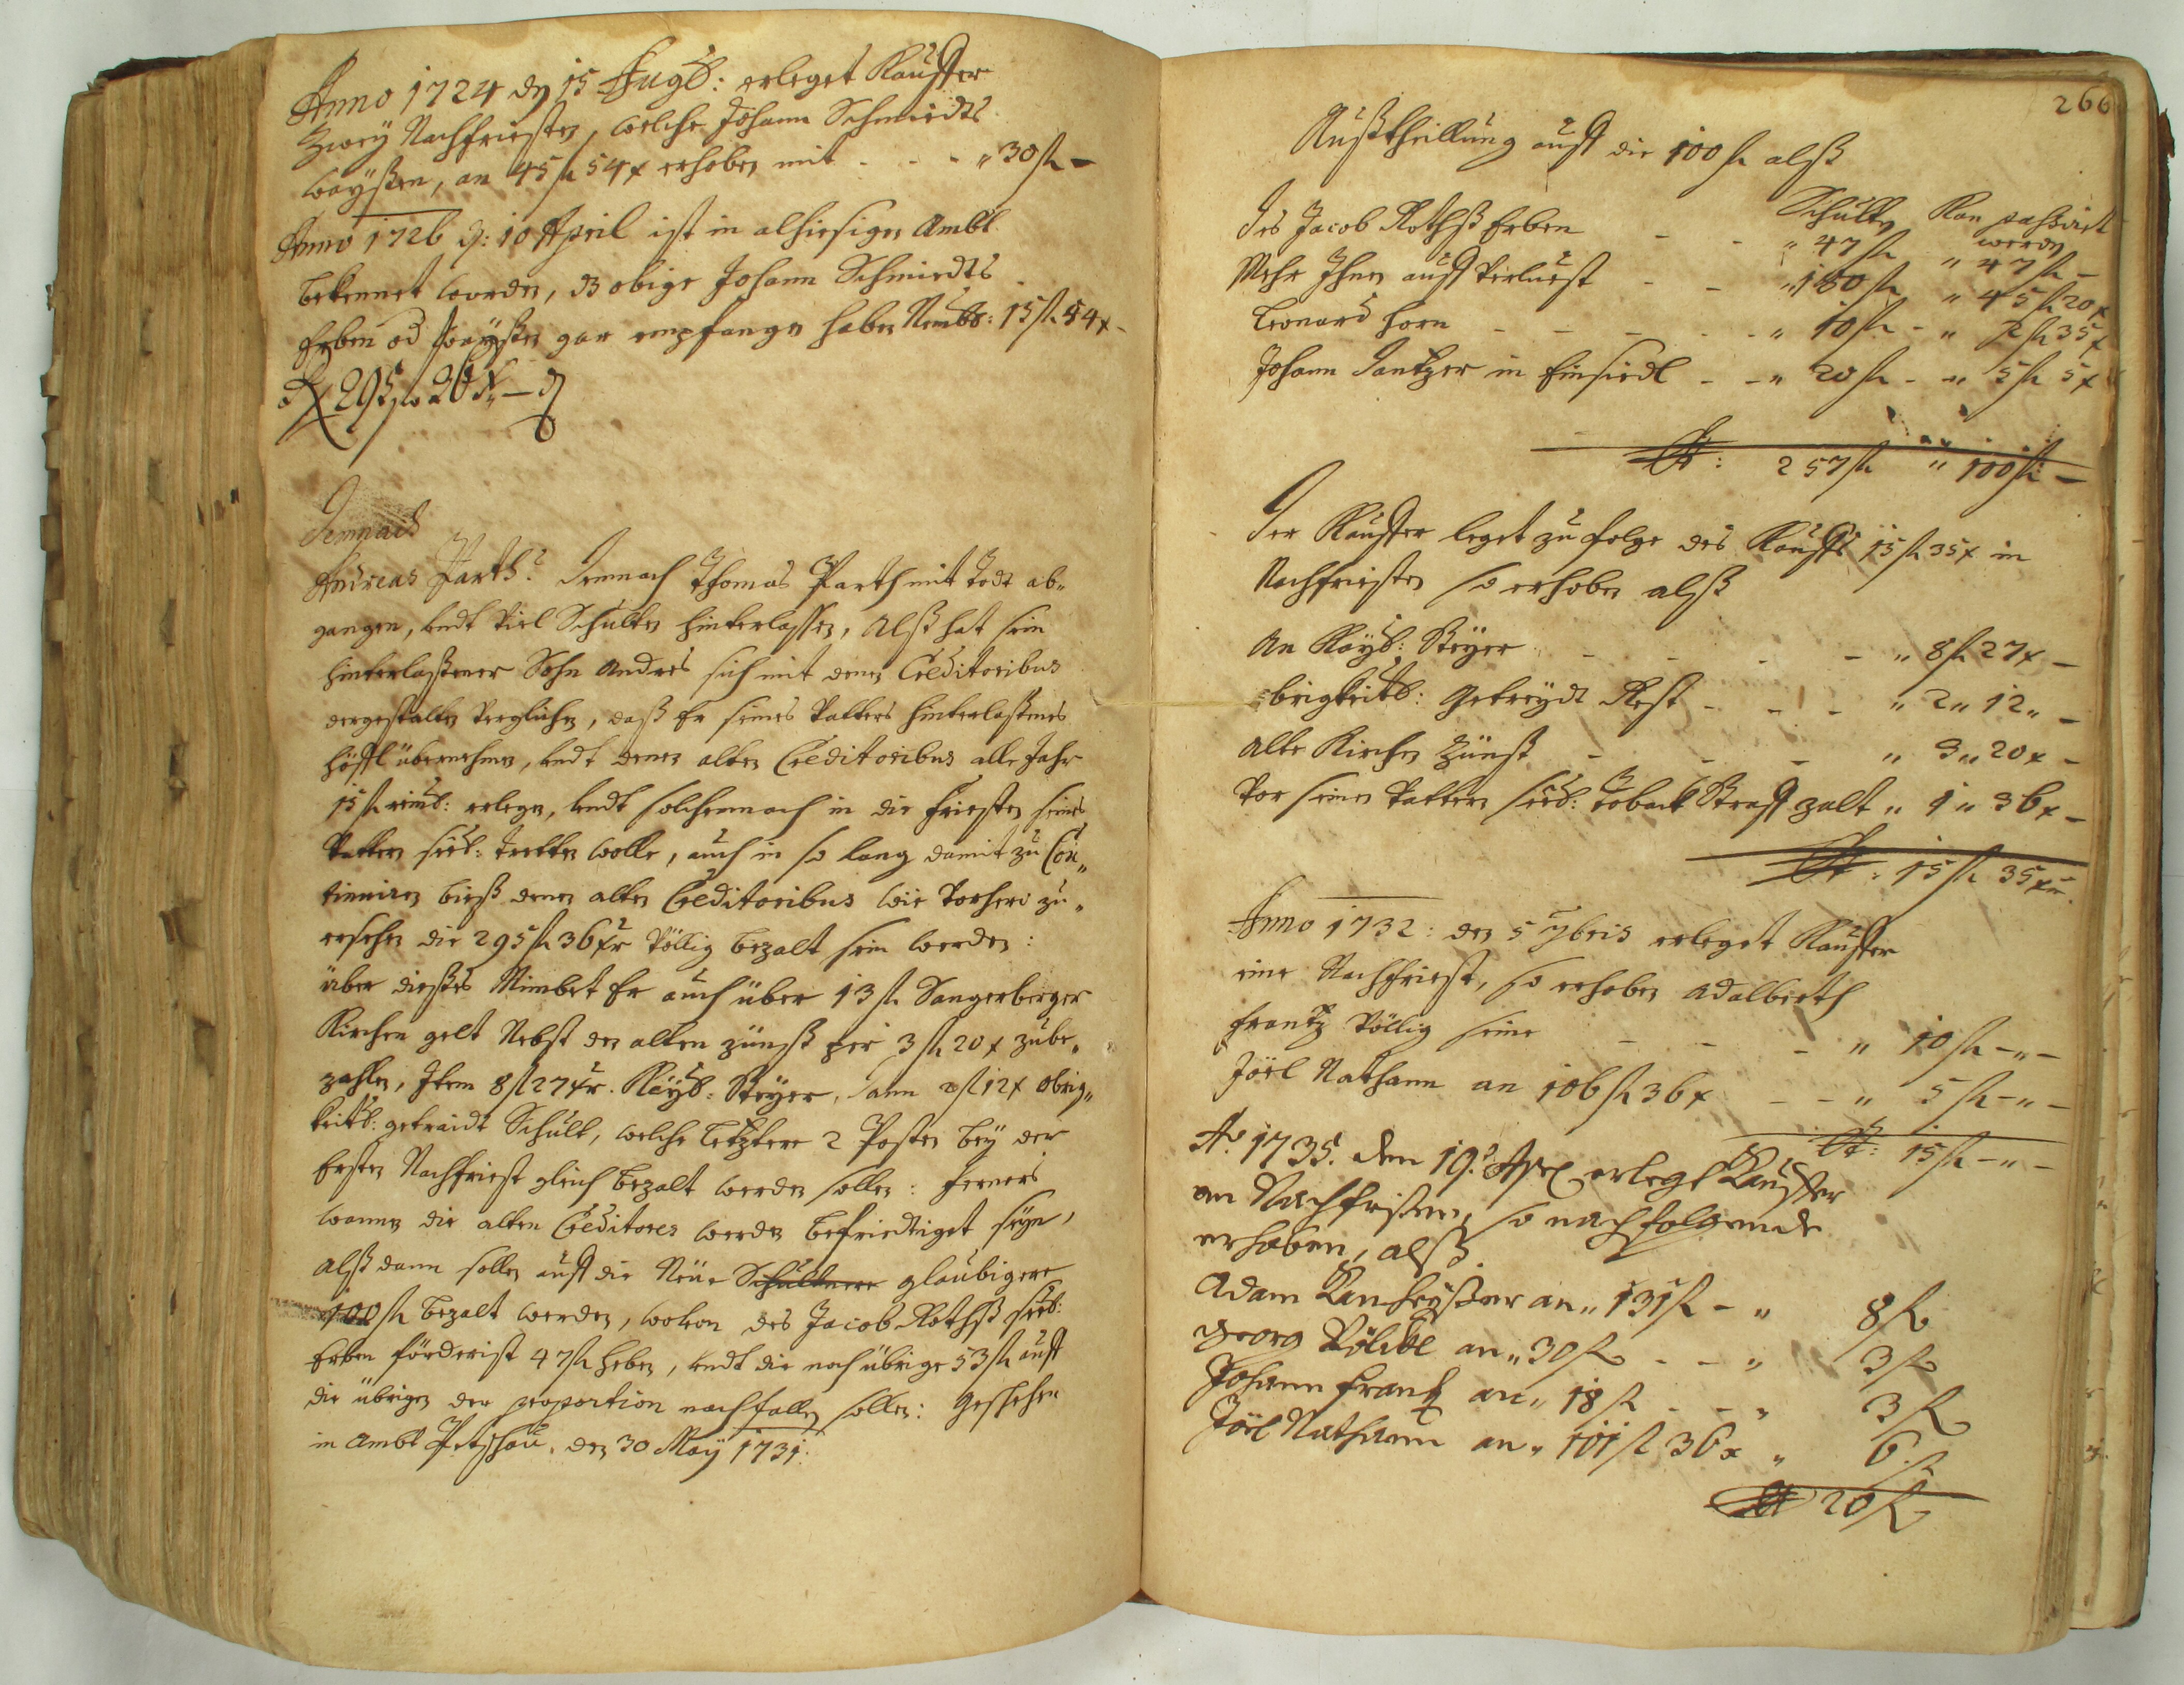 Anno 1724 dẏ 15 Augs: erleget Kauffer
Zweÿ Nachfriesten, welche Johann Schmiedts
Waÿßen, an 45 fl 54 x erhoben mit - - - „ 30 fl -
Anno 1726 d: 10 April ist in alhiesigen Ambt
bekennet worden, dz obige Johann Schmiedts
Erben od Waÿßen gar empfangen haben Nembl: 15 fl 54 x -
Demnach
Andreas Parth. Demnach Thomas Parth mit Todt ab-
gangen, undt viel Schulten hinterlassen, Alß hat sein
hinterlaßener Sohn Andres sich mit denen Creditoribus
dergestalten verglichen, daß Er seines Vatters hinterlaßenes
Höffl übernehmen, undt denen alten Creditoribus alle Jahr
15 fl reinl: erlegen, undt solchemnach in die Friesten seines
Vattern seel: tretten wolle, auch in so lang damit zu Con„
tinuiren bieß denen alten Creditoribus wie vorhero zu„
ersehen die 295 fl 36 xr völlig bezalt sein werden:
über dießes Nimbet Er auch über 13 fl Sangerberger
Kirchen gelt Nebst den alten zünß per 3 fl 20 x zube„
zahlen, Item 8 fl 27 xr. Kaÿs: Steÿer, dann 2 fl 12 x obrig„
keitl: getraidt Schult, welche letztere 2 Posten beÿ der
Ersten Nachfriest gleich bezalt werden sollen: Ferners
wannen die alten Creditores werden befriedtiget seÿn,
alß dann sollen auff die Neüe Schultnere glaubigere
100 fl bezalt werden, wovon des Jacob Rothß seel:
Erben förderist 47 fl heben, undt die noch übrige 53 fl auff
die übrigen der proportion nach fallen sollen: Geschehen
in Ambt Petschau, den 30 Maÿ 1731.
266
Außtheillung auff die 100 fl alß
Schulten Kan passiret
werden
Des Jacob Rothß Erben - - „ 47 fl „ 47 fl -
Mehr Ihnen auff Verluest - - „ 180 fl „ 45 fl 20 x
Leonard Horn - - - - - „ 10 fl - „ 2 fl 35 x
Johann Dantzer in Einsiedl - - „ 20 fl - „ 5 fl 5 x
257 fl „ 100 fl -
Der Kauffer leget zu folge des Kauffs 15 fl 35 x in
Nachfriesten so erhoben alß
An Kaÿs: Steÿer - - - - „ 8 fl 27 x -
obrigkeitl: Getreÿdt Rest - - - „ 2 „ 12 „ -
alte Kirchen Zünß - - - „ 3 „ 20 x -
Vor seinen Vattern seel: Toback Straff zalt „ 1 „ 36 x -
15 fl 35 x
Anno 1732: den 5 7bris erleget Kauffer
eine Nachfriest, so erhoben Adalberth
Frantz völlig seine - - - „ 10 fl - „ -
Joël Nathann an 106 fl 36 x - - „ 5 fl - „ -
15 fl - „ -
Ao. 1735. den 19. Apr: erlegt Kauffer
an Nachfristen, so nachfolgende
erhoben, alß
Adam Lenheyßner an „ 131 fl - „ 8 fl
Georg Völckl an „ 30 fl - - „ 3 fl
Johann Frantz an „ 18 fl - - „ 3 fl
Joël Nathann an „ 101 fl 36 x „ 6 fl
20 fl